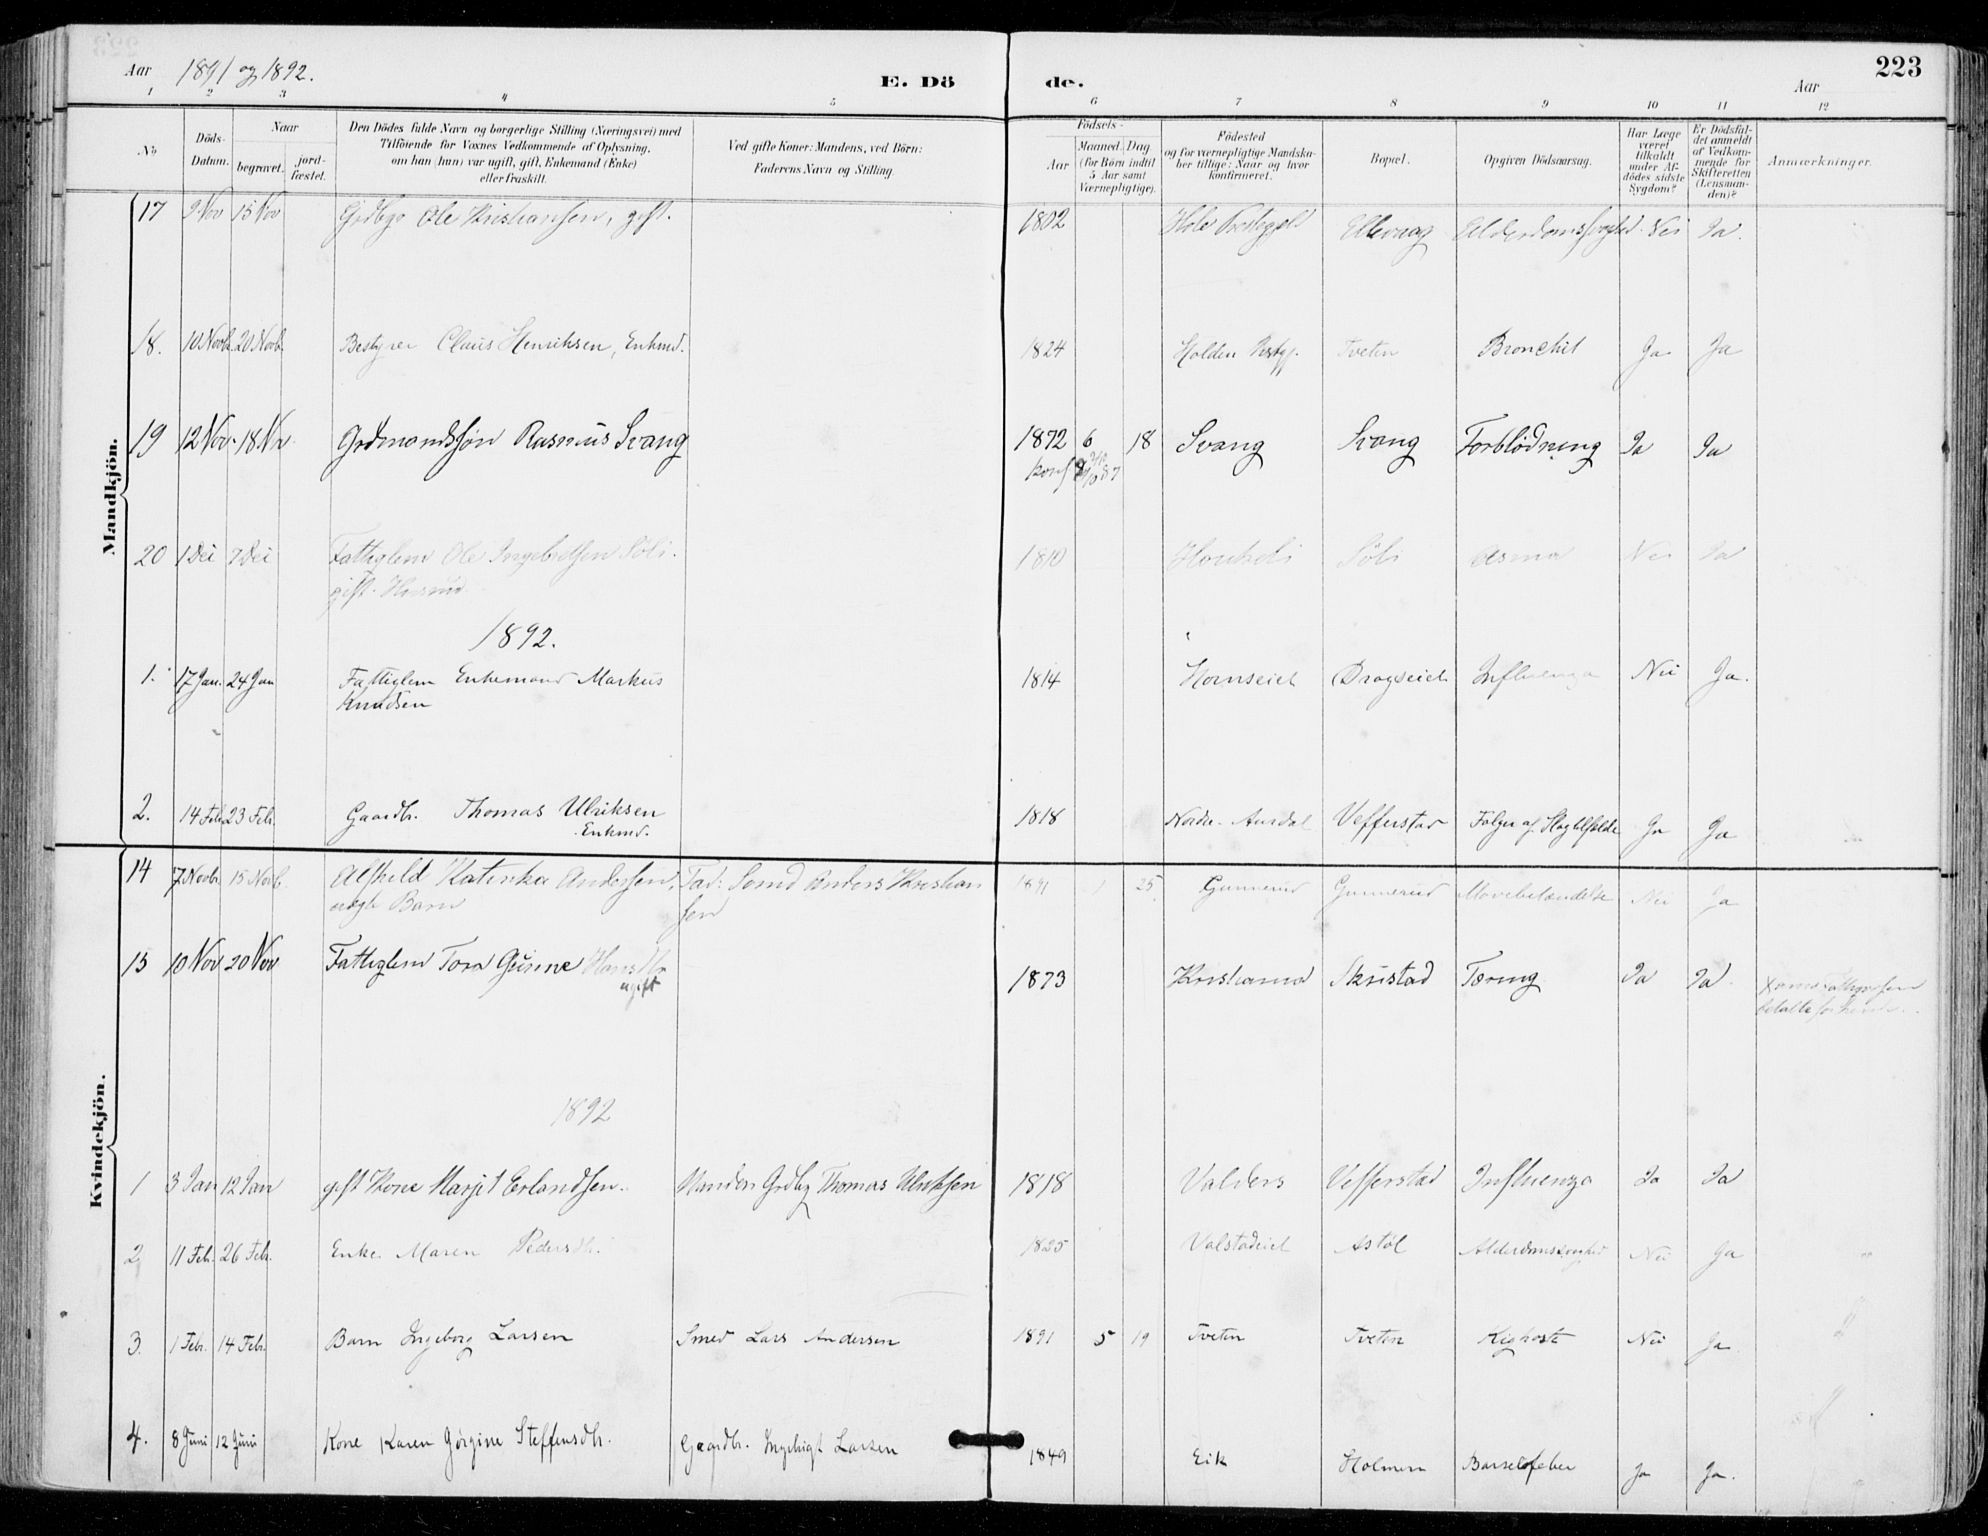 223
Aar 1891 og 1892.
E. Dö de.
Aar
1 2 3 4 5 6 7 8 9 10 11 12
No.
Döds-Datum.
Naar
begravet.
jord-fæstet.
Den Dödes fulde Navn og borgerlige Stilling (Næringsvei) med
Tilföiende for Voxnes Vedkommende af Oplysning,
om han (hun) var ugift, gift, Enkemand (Enke)
eller fraskilt.
Ved gifte Koner: Mandens, ved Börn:
Faderens Navn og Stilling.
Födsels-
Aar
Maaned. Dag
(for Börn indtil
5 Aar samt
Værnepligtige).
Födested
og for værnepligtige Mandska-
ber tillige: Naar og hvor
konfirmeret.
Bopæl.
Opgiven Dödsaarsag.
Har Læge
været
tilkaldt
under Af-
dödes sidste
Sygdom?
Er Dödsfal-
det anmeldt
af Vedkom-
mende for
Skifteretten
(Lensman-
den)?
Anmærkninger.
Mandkjön.
17 9 Nov 15 Nov Ole Kristiansen, gift. 1802 Hole Ellevang Alderdomssvaghed Nei Ja.
18. 10 Novb. 20 Novb. Bestyrer Claus Henriksen, Enkmd. 1824 Holden Tveten Bronchit Ja Ja
19 12 Nov. 18. Nv. Grdmandssøn Rasmus Svang 1872 6 18 Svang Svang Forblödning Ja Ja
konf 87
20 1 Dec 7 Dec Fattiglem Ole Ingebretsen Söli. 1810 Söli Asma Nei Ja
gift.
1892.
1. 17 Jan. 24 Jan Fattiglem Enkemand Markus 1814 Hornseiet Dragseiet Influenza Nei Ja.
Knudsen
2. 14 Feb. 23 Feb. Gaardb. Thomas Ulriksen 1818 Nordre Aurdal Vefferstad Følger af Ja Ja
Enkmd.
Kvindekjön.
14 7 Novb. 15 Novb. Alfhild Katinka Andersen, Fad: Anders Kristian 1891 1 25. Gunnerud Gunnerud Mavebetændelse Nei Ja
ægte Barn sen
15 10 Nov 20 Nov Fattiglem Tora Gunine Hansdtr 1873 Kristiania Skristad Tæring Ja Ja.
ugift
1892
1 3 Jan 12 Jan gift Kone Marjit Erlandsen. Manden Grdbg Thomas Ulriksen 1818 Valders Vefferstad Influenza Ja Ja
2 11 Feb. 26 Feb. Enke Maren Pedersdtr. 1825 Valstadeiet Astöl Alderdomssvaghed Nei Ja
3. 1 Febr. 14 Febr. Barn Ingeborg Larsen Smed Lars Andersen 1891 5 19 Tveten Tveten Kighoste Nei Ja
4. 8 Juni 12 Juni Kone Karen Görgine Steffensdtr. Gaardbr. Ingebrigt Larsen 1849 Eik Holmen Barselsfeber Ja Ja.